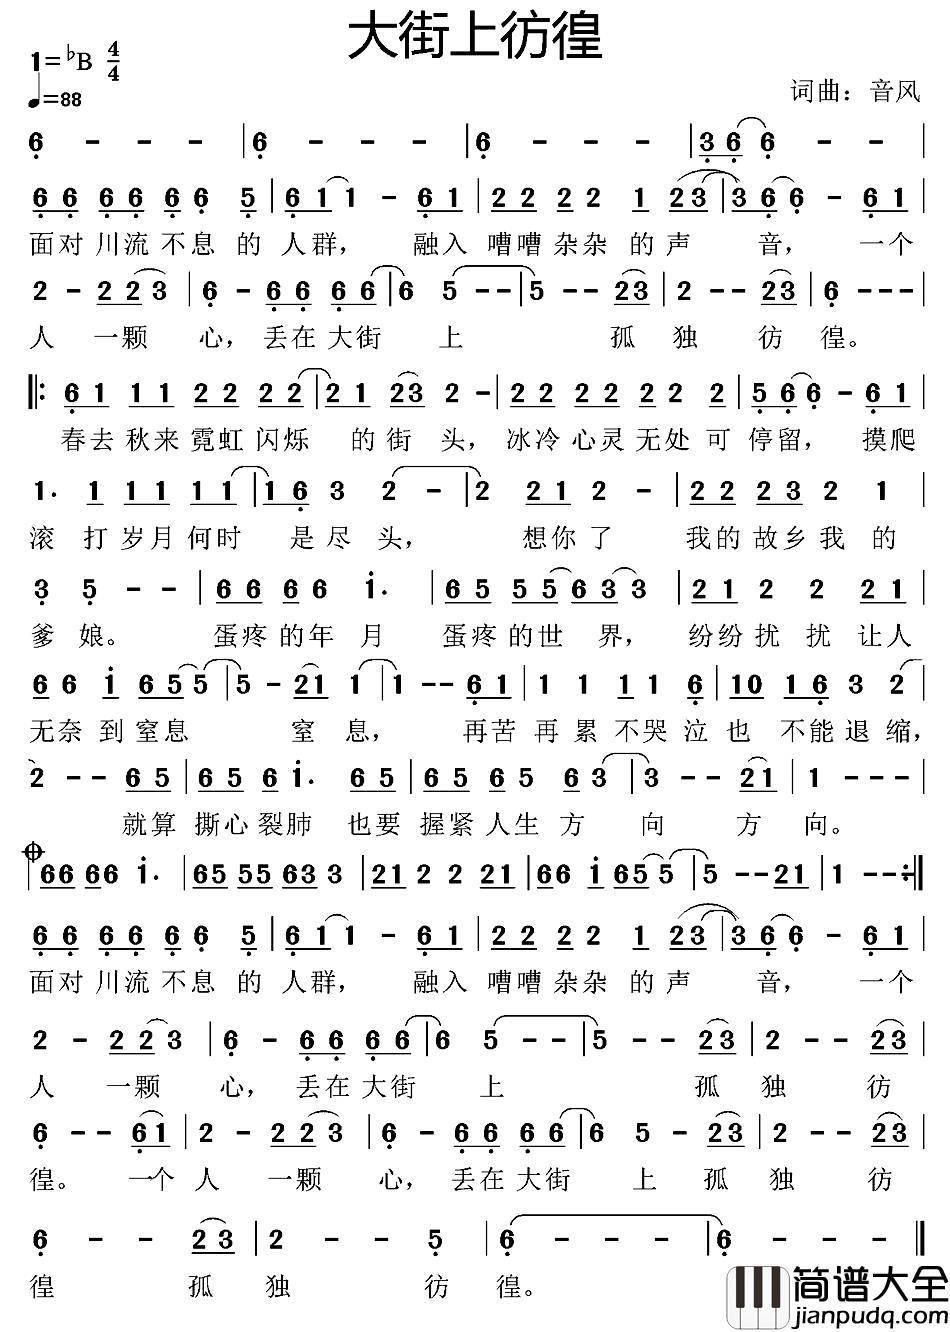 大街上彷徨
1=♭B 4/4
♩=88
词曲：音风
6 - - - | 6 - - - | 6 - - - | 3 6 6 - - |
6 6 6 6 6 6 5 | 6 1 1 - 6 1 | 2 2 2 2 2 1 2 3 | 3 6 6 - 6 1 |
面对 川流 不息 的 人群， 融入 嘈嘈 杂杂 的 声 音， 一个
2 - 2 2 3 | 6 - 6 6 6 6 | 6 5 - - | 5 - - 2 3 | 2 - - 2 3 | 6 - - - |
人 一颗 心， 丢在 大街 上 孤 独 彷 徨。
‖: 6 1 1 1 2 2 2 2 | 2 1 2 3 2 - | 2 2 2 2 2 2 2 | 5 6 6 - 6 1 |
春去 秋来 霓虹 闪烁 的 街 头， 冰冷 心灵 无处 可 停留， 摸爬
1. 1 1 1 1 1 | 1 6 3 2 - | 2 2 1 2 - | 2 2 2 3 2 1 |
滚 打 岁月 何时 是 尽 头， 想你 了 我的 故乡 我 的
3 5 - - | 6 6 6 6 i. | 6 5 5 5 6 3 3 | 2 1 2 2 2 1 |
爹 娘。 蛋疼 的年 月 蛋疼 的世 界， 纷纷 扰 扰 让人
6 6 i 6 5 5 | 5 - 2 1 1 | 1 - - 6 1 | 1 1 1 1 6 | 1 0 1 6 3 2 |
无奈 到 窒息 窒 息， 再苦 再 累 不哭 泣 也 不能 退 缩，
2 - - 6 5 | 6 5 6 i. | 6 5 6 5 6 3 | 3 - - 2 1 | 1 - - - |
就算 撕心 裂肺 也要 握紧 人生 方 向 方 向。
6 6 6 6 i. | 6 5 5 5 6 3 3 | 2 1 2 2 2 1 | 6 6 i 6 5 5 | 5 - - 2 1 | 1 - - - :‖
6 6 6 6 6 6 5 | 6 1 1 - 6 1 | 2 2 2 2 2 1 2 3 | 3 6 6 - 6 1 |
面对 川流 不息 的 人群， 融入 嘈嘈 杂杂 的 声 音， 一个
2 - 2 2 3 | 6 - 6 6 6 6 | 6 5 - - | 5 - - 2 3 | 2 - - 2 3 |
人 一颗 心， 丢在 大街 上 孤 独 彷
6 - - 6 1 | 2 - 2 2 3 | 6 - 6 6 6 6 | 6 5 - 2 3 | 2 - - 2 3 |
徨。 一个 人 一颗 心， 丢在 大街 上 孤 独 彷
6 - - 2 3 | 2 - - 5 | 6 - - - | 6 - - - ‖
徨 孤 独 彷 徨。
简谱大全
jianpudq.com